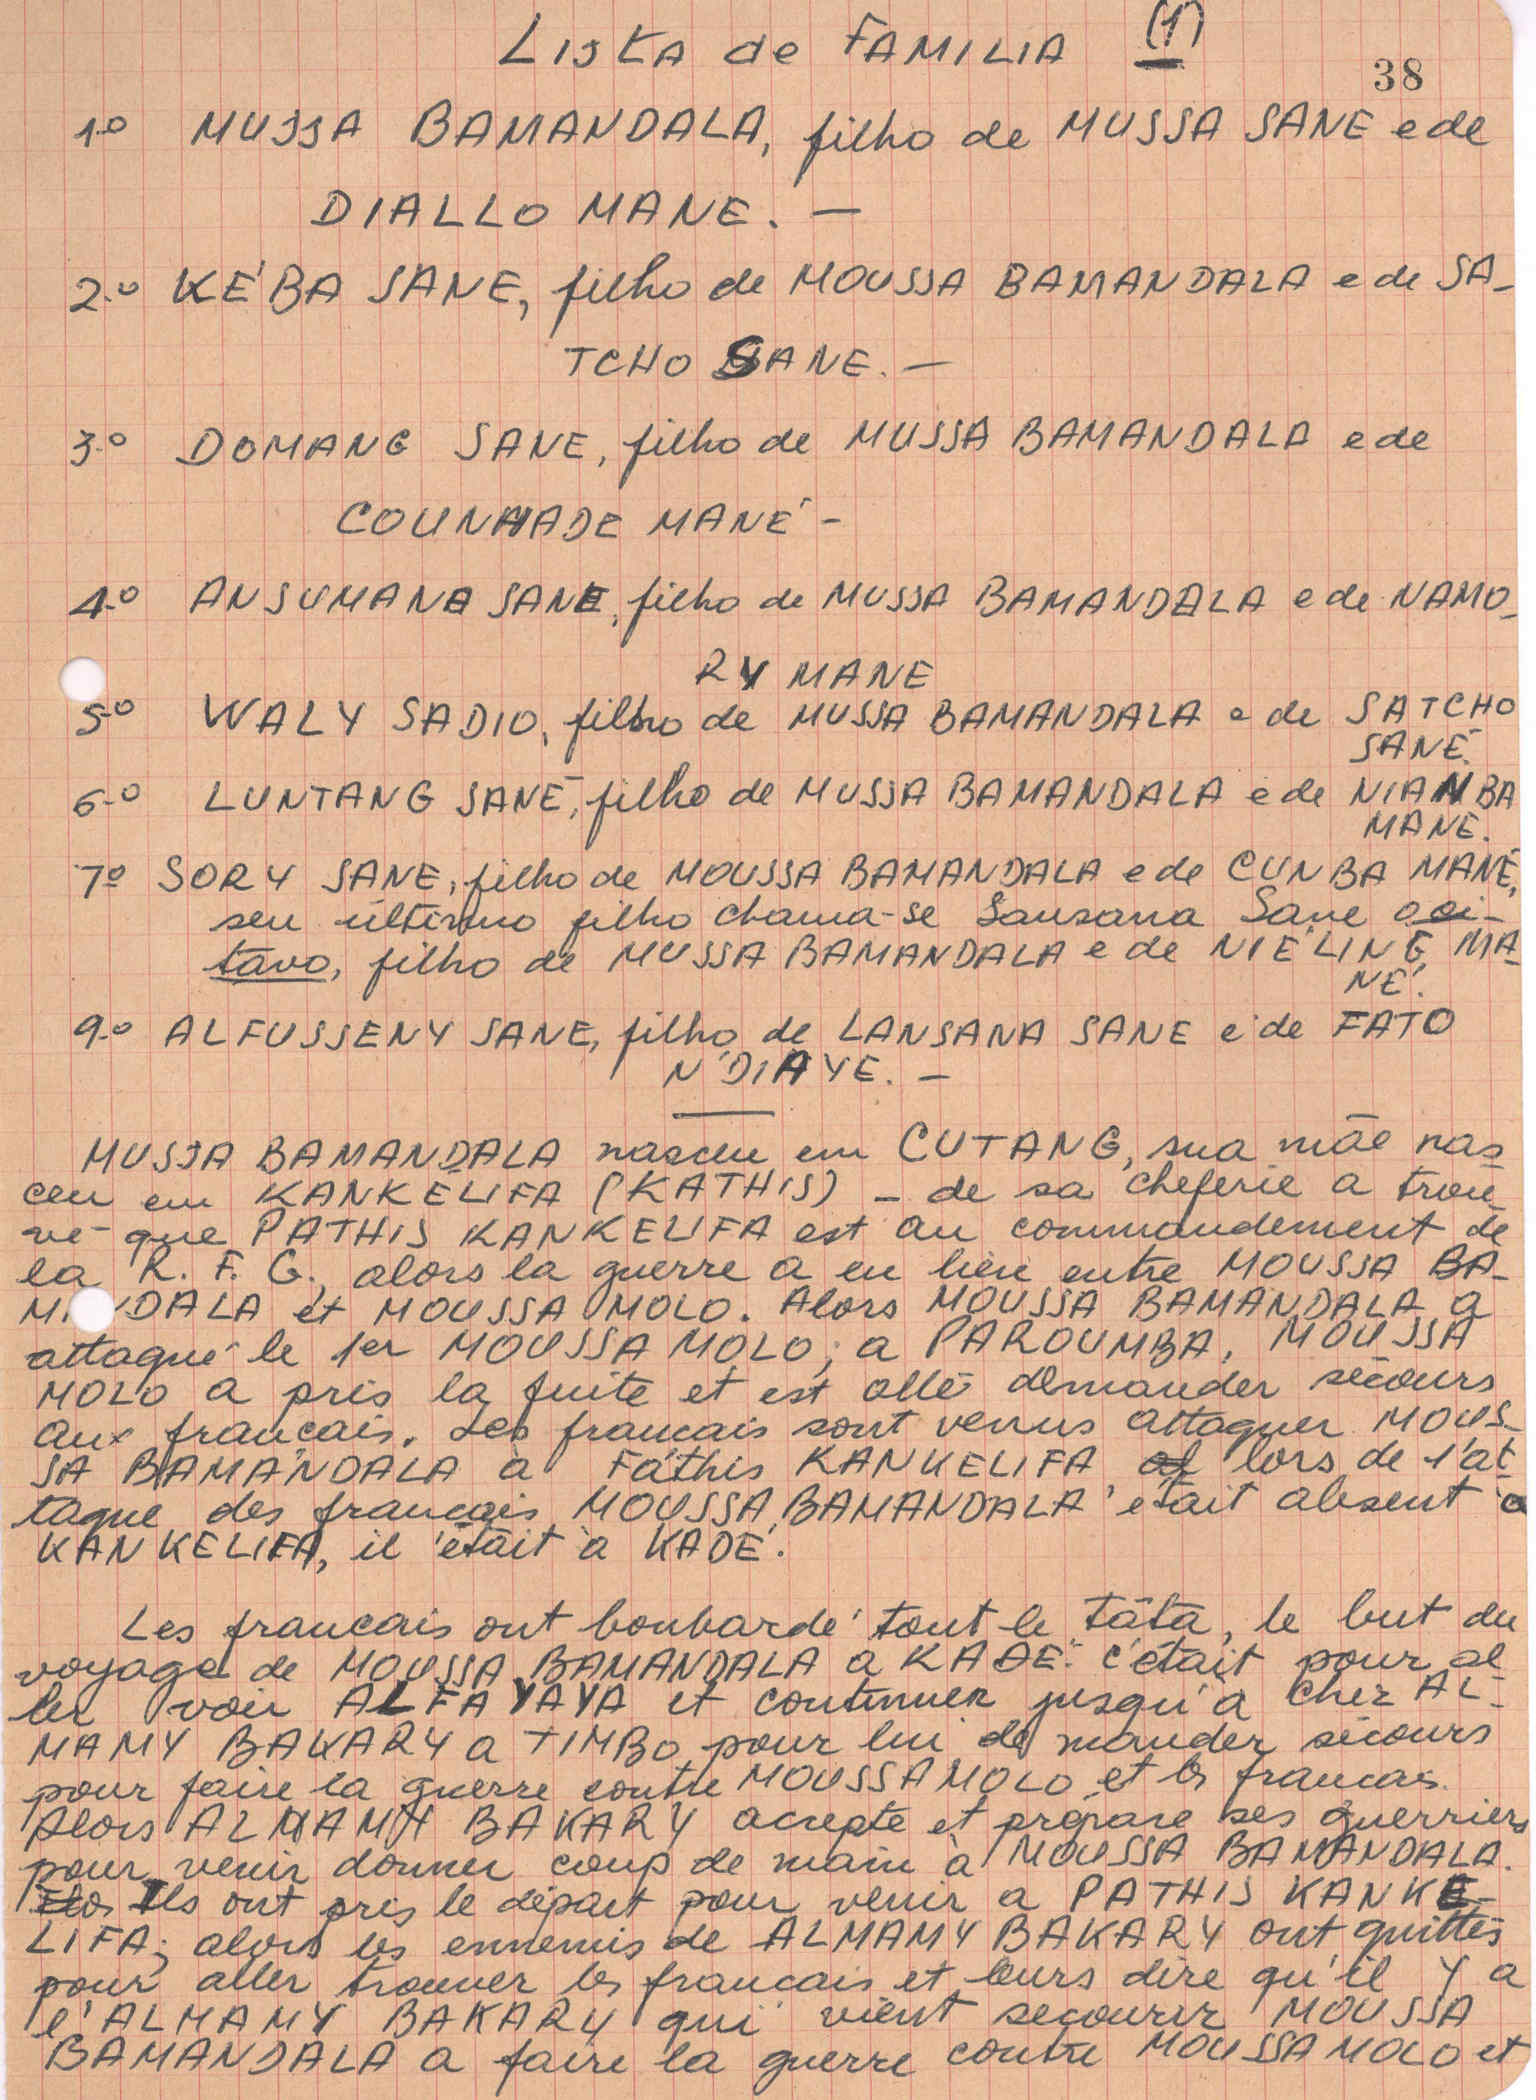 Lista de FAMILIA (1)
38
1.º MUSSA BAMANDALA, filho de MUSSA SANE e de
DIALLO MANE. —
2.º KÉBA SANE, filho de MOUSSA BAMANDALA e de SA-
TCHO SANE. —
3.º DOMANG SANE, filho de MUSSA BAMANDALA e de
COUNHADE MANÉ -
4.º ANSUMANE SANE, filho de MUSSA BAMANDALA e de NAMO-
RY MANE
5.º WALY SADIO, filho de MUSSA BAMANDALA e de SATCHO
SANÉ.
6.º LUNTANG SANÉ, filho de MUSSA BAMANDALA e de NIANBA
MANE.
7º SORY SANE, filho de MOUSSA BAMANDALA e de CUNBA MANÉ,
seu último filho chama-se Lansana Sane o oi-
tavo, filho de MUSSA BAMANDALA e de NIÉLING MA-
NÉ.
9.º ALFUSSENY SANE, filho de LANSANA SANE e de FATO
N'DIAYE. —
MUSSA BAMANDALA nasceu em CUTANG, sua mãe nas-
ceu em KANKELIFA (KATHIS) - de sa cheferie a trou-
vé que PATHIS KANKELIFA est au commandement de
la R. F. G., alors la guerre a eu lieu entre MOUSSA BA-
M DALA et MOUSSA MOLO. Alors MOUSSA BAMANDALA a
attaqué le 1er MOUSSA MOLO; a PAROUMBA, MOUSSA
MOLO a pris la fuite et est allé demander sécours
aux français. Les francais sont venus attaquer MOUS-
SA BAMANDALA a Fathis KANKELIFA lors de l'at-
taque des français MOUSSA BAMANDALA était absent a
KANKELIFA, il était à KADÉ.
Les francais ont bonbardé tout le Tâta, le but du
voyage de MOUSSA BAMANDALA a KADE. C'était pour al
ler voir ALFA YAYA et continuer jusqu'a chez AL-
MAMY BAKARY a TIMBO pour lui demander sécours
pour faire la guerre contre MOUSSA MOLO et les francais.
Alors ALMAMY BAKARY accepte et prépare ses guerriers
pour venir donner coup de main à MOUSSA BAMANDALA.
Ils ont pris le départ pour venir a PATHIS KANKE-
LIFA; alors les ennemis de ALMAMY BAKARY ont quittés
pour aller trouver les francais et leurs dire qu'il y a
l'ALMAMY BAKARY qui vient secourir MOUSSA
BAMANDALA a faire la guerre contre MOUSSA MOLO et